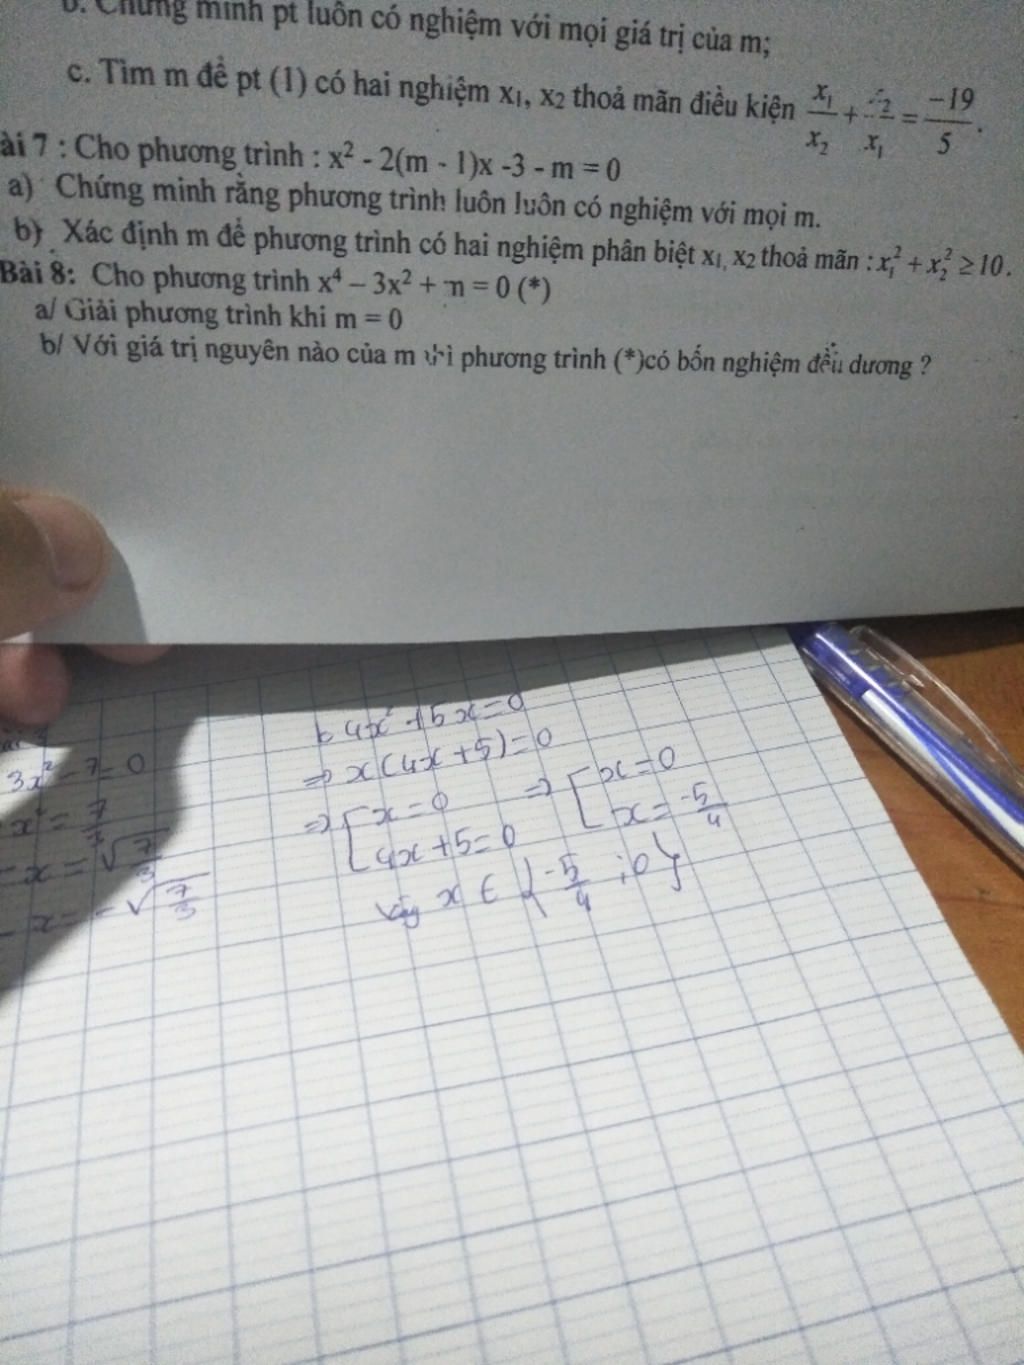 b. Chứng minh pt luôn có nghiệm với mọi giá trị của m;
c. Tìm m để pt (1) có hai nghiệm x₁, x₂ thoả mãn điều kiện x₁/x₂ + x₂/x₁ = -19/5.
ài 7 : Cho phương trình : x² - 2(m - 1)x -3 - m = 0
a) Chứng minh rằng phương trình luôn luôn có nghiệm với mọi m.
b) Xác định m để phương trình có hai nghiệm phân biệt x₁, x₂ thoả mãn : x₁² + x₂² ≥ 10.
Bài 8: Cho phương trình x⁴ – 3x² + m = 0 (*)
a/ Giải phương trình khi m = 0
b/ Với giá trị nguyên nào của m thì phương trình (*)có bốn nghiệm đều dương ?
3x² - 7 = 0
x² = 7/3
x = √7/3
x = -√7/3
b 4x² + 5x = 0
=> x(4x + 5) = 0
=> [ x = 0
4x + 5 = 0
=> [ x = 0
x = -5/4
Vậy x ∈ { -5/4 ; 0 }